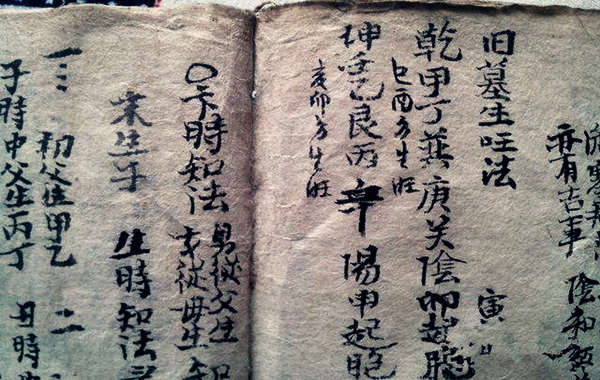 亦有吉事 陰和
旧墓生旺法 寅日
乾甲丁巽庚癸陰卯起胞
巳酉方生旺
坤壬乙艮丙辛 陽申起胞
亥卯方生旺
○卡時知法 男從父生
女從母生 知
宋生子 生時知法
初父生甲乙 二
子時中父生丙丁 丑時